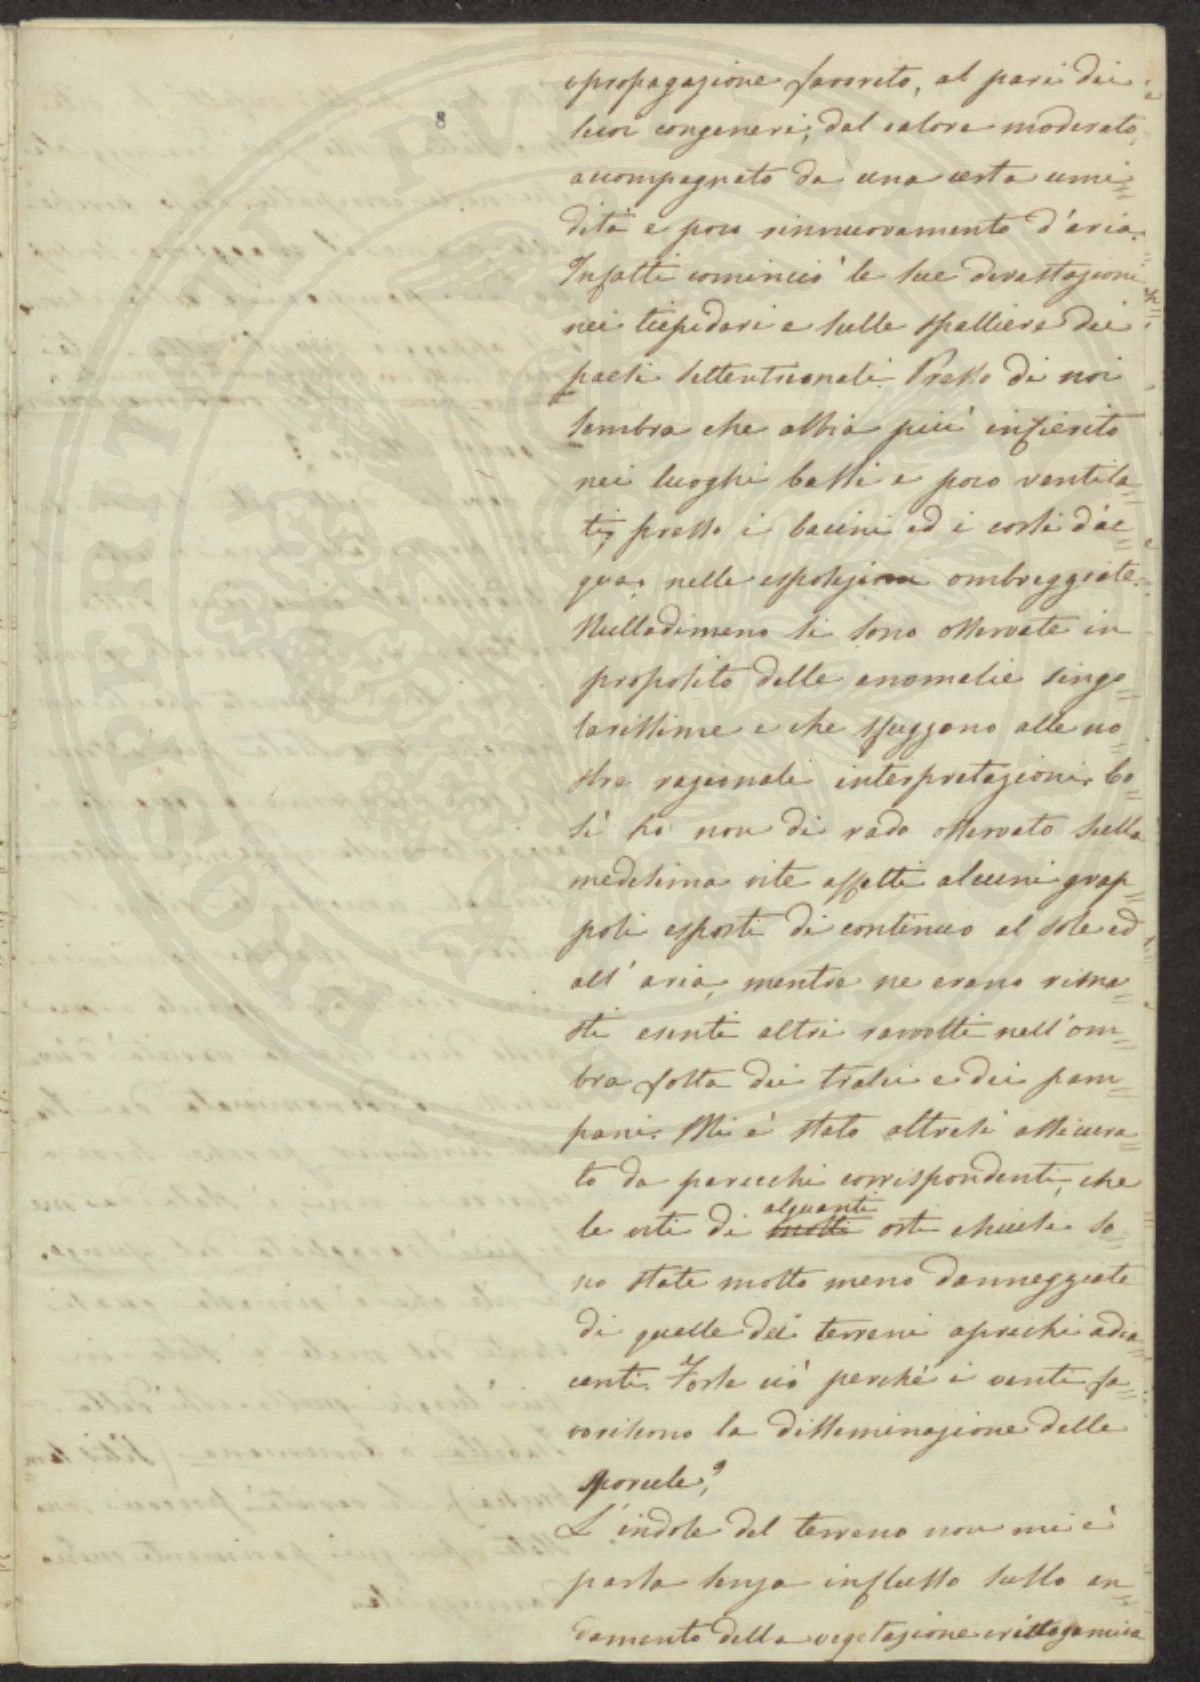 8
e propagazione favorito, al pari dei
suoi congeneri, dal calore moderato,
accompagnato da una certa umi=
dità e poco rinnuovamento d'aria.
Infatti cominciò le sue devastazioni
nei tiepidari e sulle spalliere dei
paesi settentrionali. Presso di noi
sembra che abbia più infierito
nei luoghi bassi e poco ventila=
ti, presso i bacini ed i corsi d'ac=
qua, nelle esposizioni ombreggiate.
Nulladimeno si sono osservate in
proposito delle anomalie singo=
larissime e che sfuggono alle no=
stre razionali interpretazioni. Co=
sì ho non di rado osservato sulla
medesima vite affetti alcuni grap=
poli esposti di continuo al sole ed
all'aria, mentre ne erano rima=
sti esenti altri ravvolti nell'om=
bra folta dei tralci e dei pam=
pani. Mi è stato altresì assicura=
to da parecchi corrispondenti, che
alquanti
le viti di molti orti chiusi so=
no state molto meno danneggiate
di quelle dei terreni aprichi adia=
centi. Forse ciò perchè i venti fa=
voriscono la disseminazione delle
sporule?
L'indole del terreno non mi è
parsa senza influsso sullo an=
damento della vegetazione crittogamica
PROSPERITATI PVBLICAE